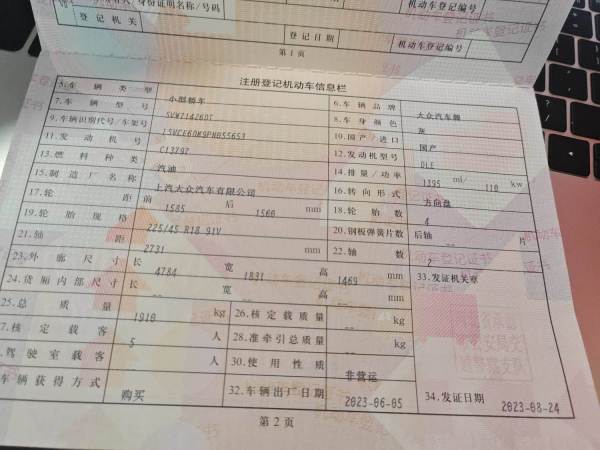 身份证明名称/号码
登记机关
登记日期
机动车登记编号
机动车登记编号
第1页
注册登记机动车信息栏
5.车辆类型 小型轿车 6.车辆品牌 大众汽车牌
7.车辆型号 8.车身颜色 灰
9.车辆识别代号/车架号 10.国产/进口 国产
11.发动机号 C13797 12.发动机型号 DLE
13.燃料种类 汽油 14.排量/功率 1395 ml/ 110 kw
15.制造厂名称 上汽大众汽车有限公司 16.转向形式 方向盘
17.轮距 前 1585 后 1560 mm 18.轮胎数 4
19.轮胎规格 225/45 R18 91V 20.钢板弹簧片数 后轴 -- 片
21.轴距 2731 mm 22.轴数 2
23.外廓尺寸 长 4784 宽 1831 高 1469 mm 33.发证机关章
24.货厢内部尺寸 长 -- 宽 -- 高 -- mm
25.总质量 1910 kg 26.核定载质量 -- kg
7.核定载客 5 人 28.准牵引总质量 -- kg
驾驶室载客 -- 人 30.使用性质 非营运
车辆获得方式 购买 32.车辆出厂日期 2023-06-05 34.发证日期 2023-08-24
第2页